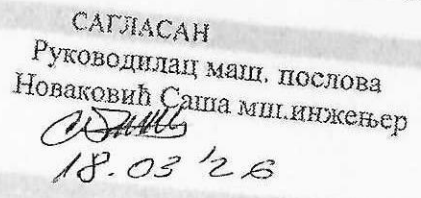 САГЛАСАН
Руководилац маш. послова
Новаковић Саша мш.инжењер
18.03 '26